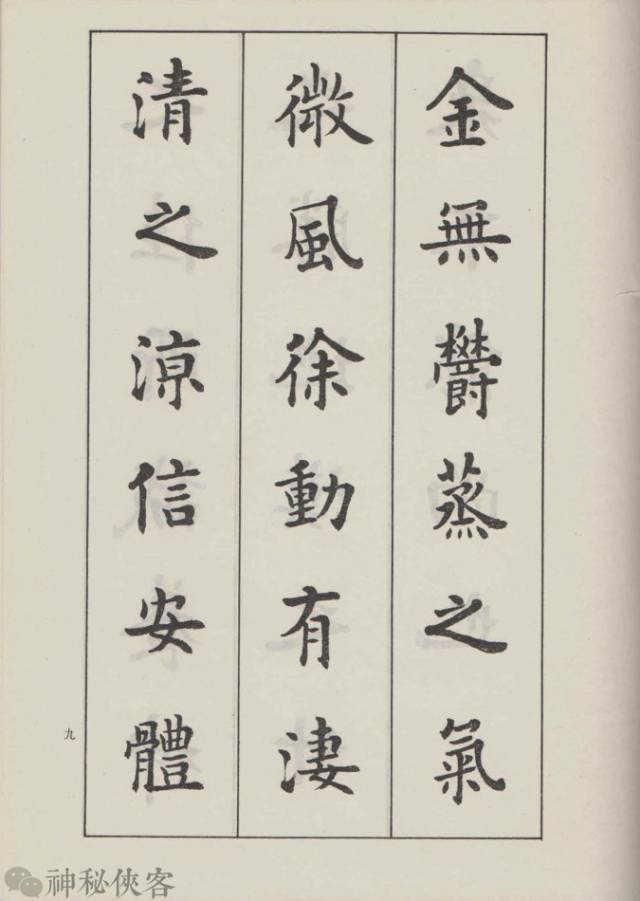 金無欝蒸之氣
微風徐動有淒
清之涼信安體
九
神秘俠客